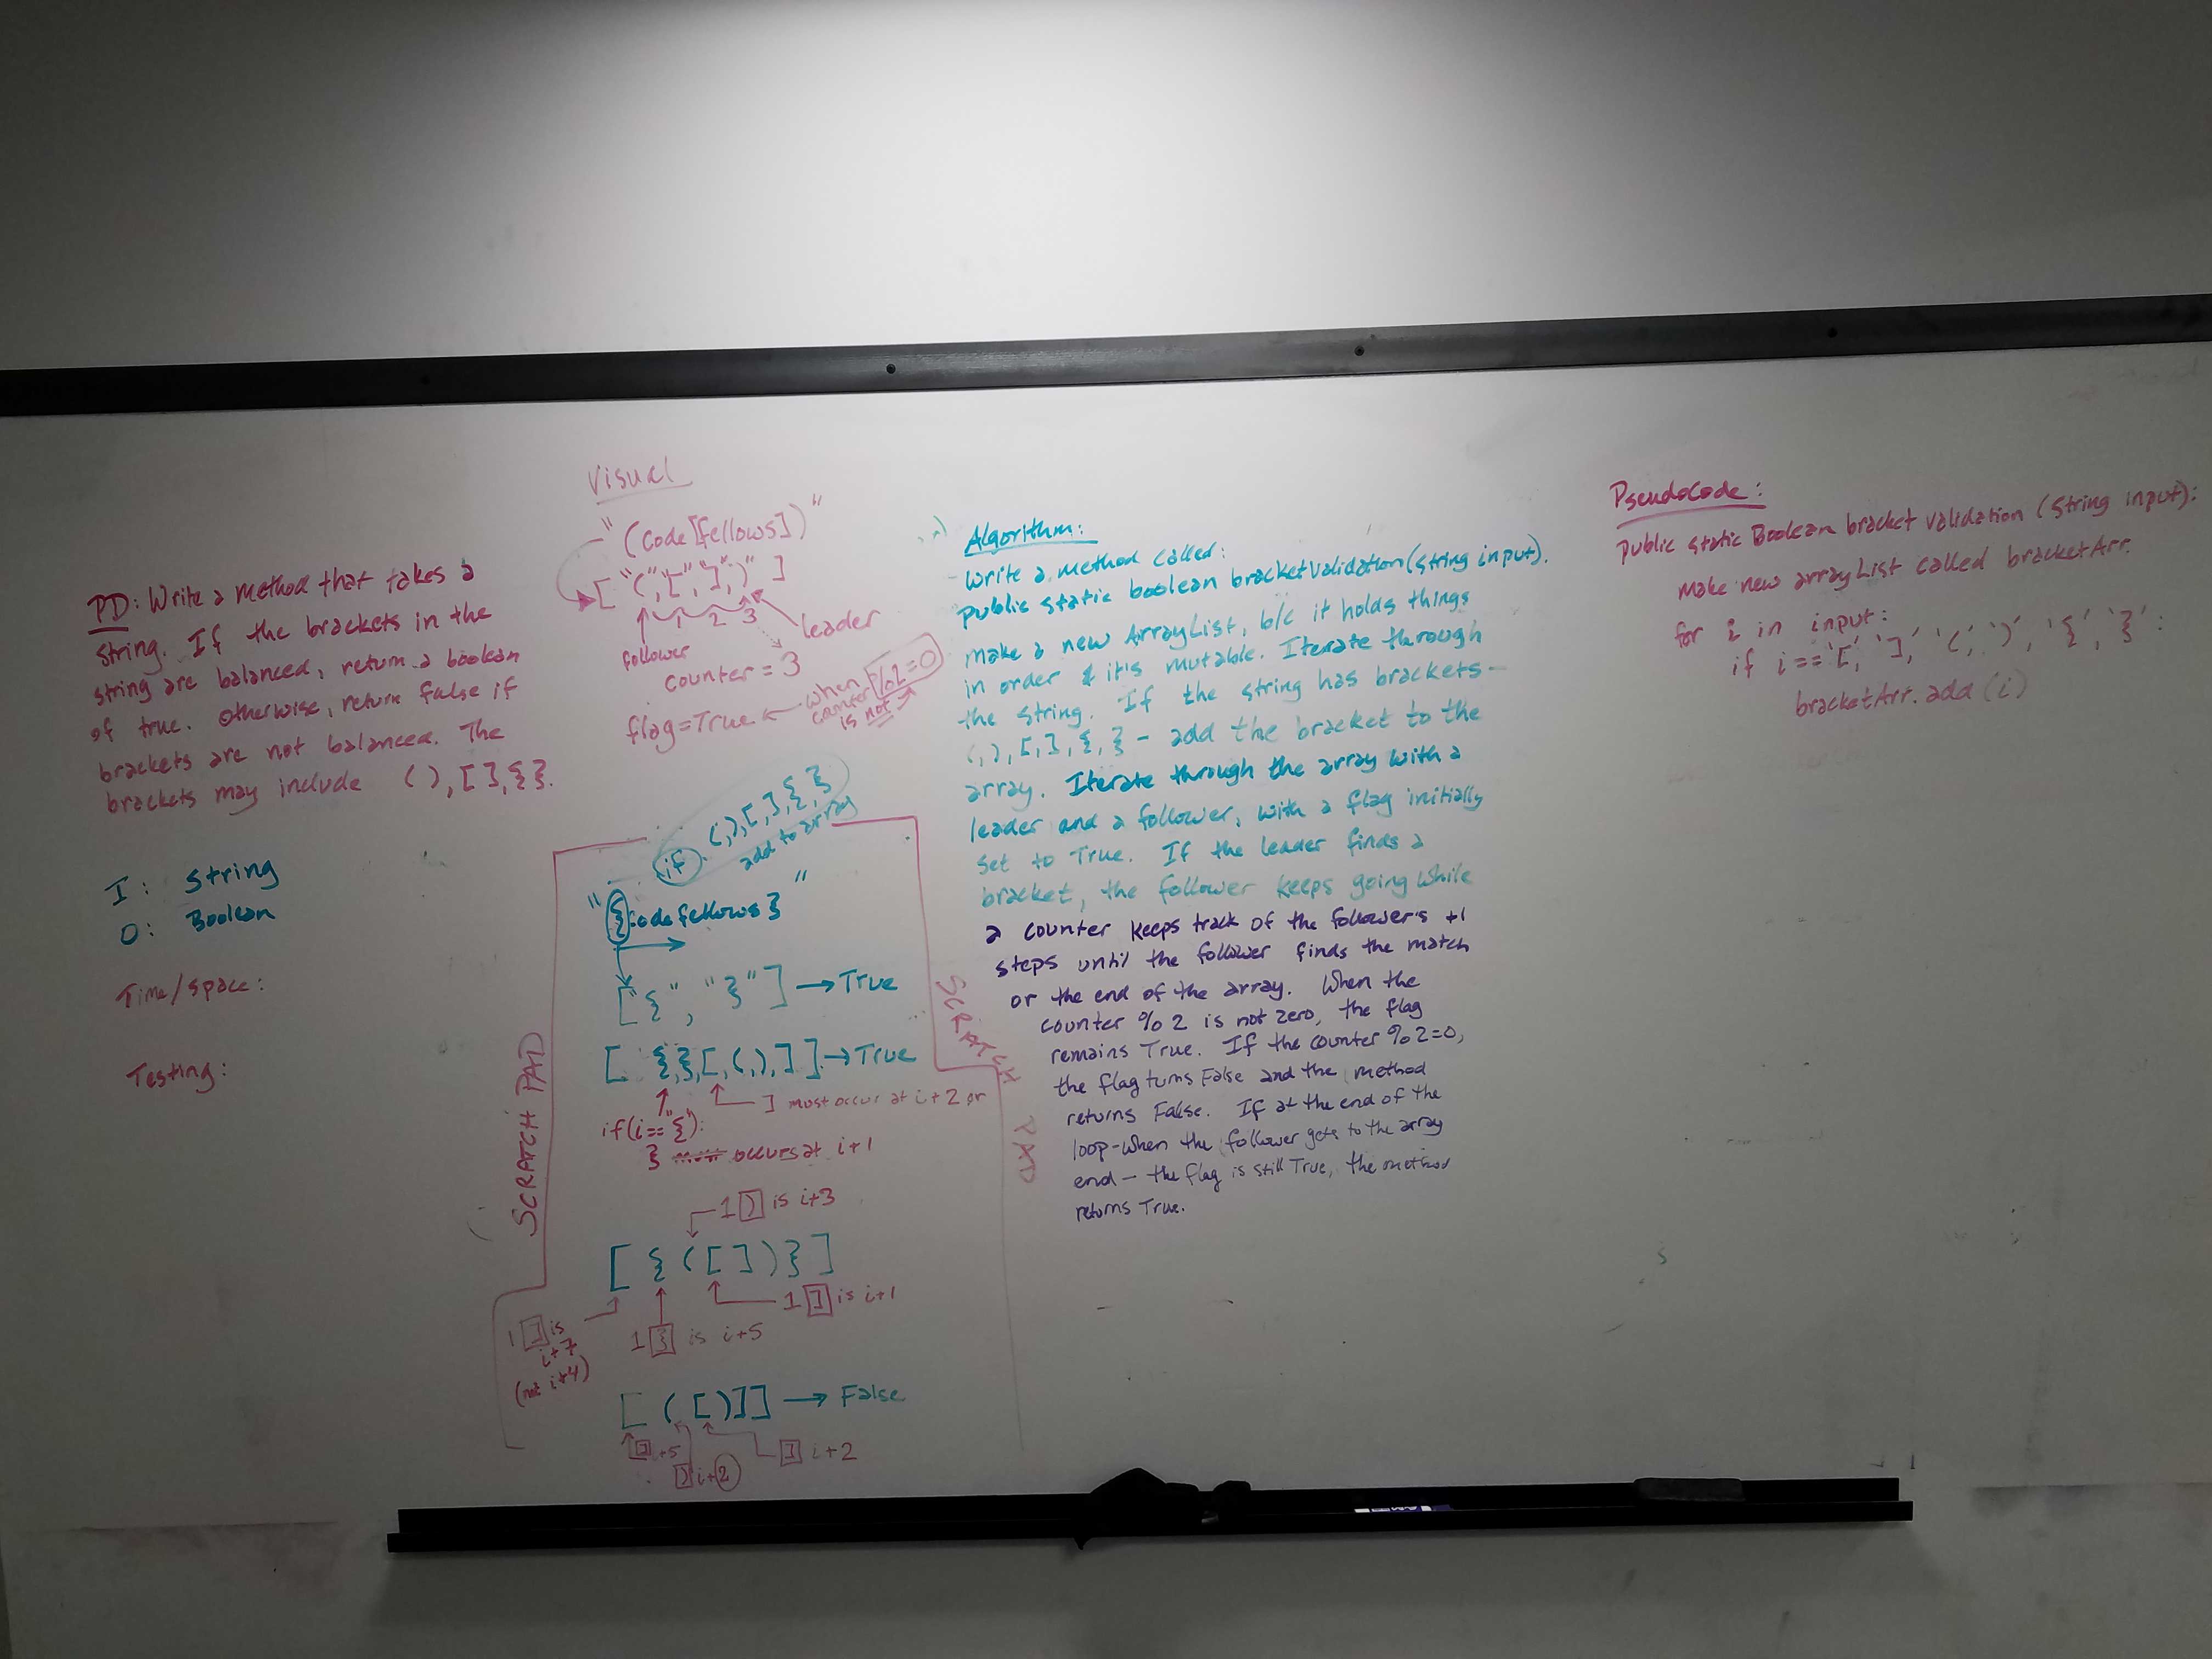 PD: Write a method that takes a
string. If the brackets in the
string are balanced, return a boolean
of true. Otherwise, return false if
brackets are not balanced. The
brackets may include ( ), [ ], { }.
I: String
O: Boolean
Time/Space:
Testing:
Visual
"(Code[fellows])"
["(","[","]",")" ]
1 2 3
leader
follower
counter = 3
flag=True ← when counter %2=0
is not
SCRATCH PAD
if (,),[,],{,}
add to array
"{codefellows}"
["{", "}"] → True
[ {,},[,(,),] ] → True
] must occur at i+2 or
if(i=="{"):
} must occurs at i+1
1 ) is i+3
[ { ( [ ] ) } ]
1 ] is i+1
1 } is i+5
1 ] is
i+7
(not i+4)
[ ( [ ) ] ] → False
] i+5
) i+2
] i+2
SCRATCH PAD
Algorithm:
- Write a method called:
public static boolean bracketValidation(String input).
Make a new ArrayList, b/c it holds things
in order & it's mutable. Iterate through
the string. If the string has brackets -
(,),[,],{,} - add the bracket to the
array. Iterate through the array with a
leader and a follower, with a flag initially
set to True. If the leader finds a
bracket, the follower keeps going while
a counter keeps track of the follower's +1
steps until the follower finds the match
or the end of the array. When the
counter % 2 is not zero, the flag
remains True. If the counter %2=0,
the flag turns False and the method
returns False. If at the end of the
loop-when the follower gets to the array
end - the flag is still True, the method
returns True.
Pseudocode:
public static Boolean bracket validation (String input):
make new arrayList called bracketArr.
for i in input:
if i=='[', ']', '(', ')', '{', '}':
bracketArr.add(i)